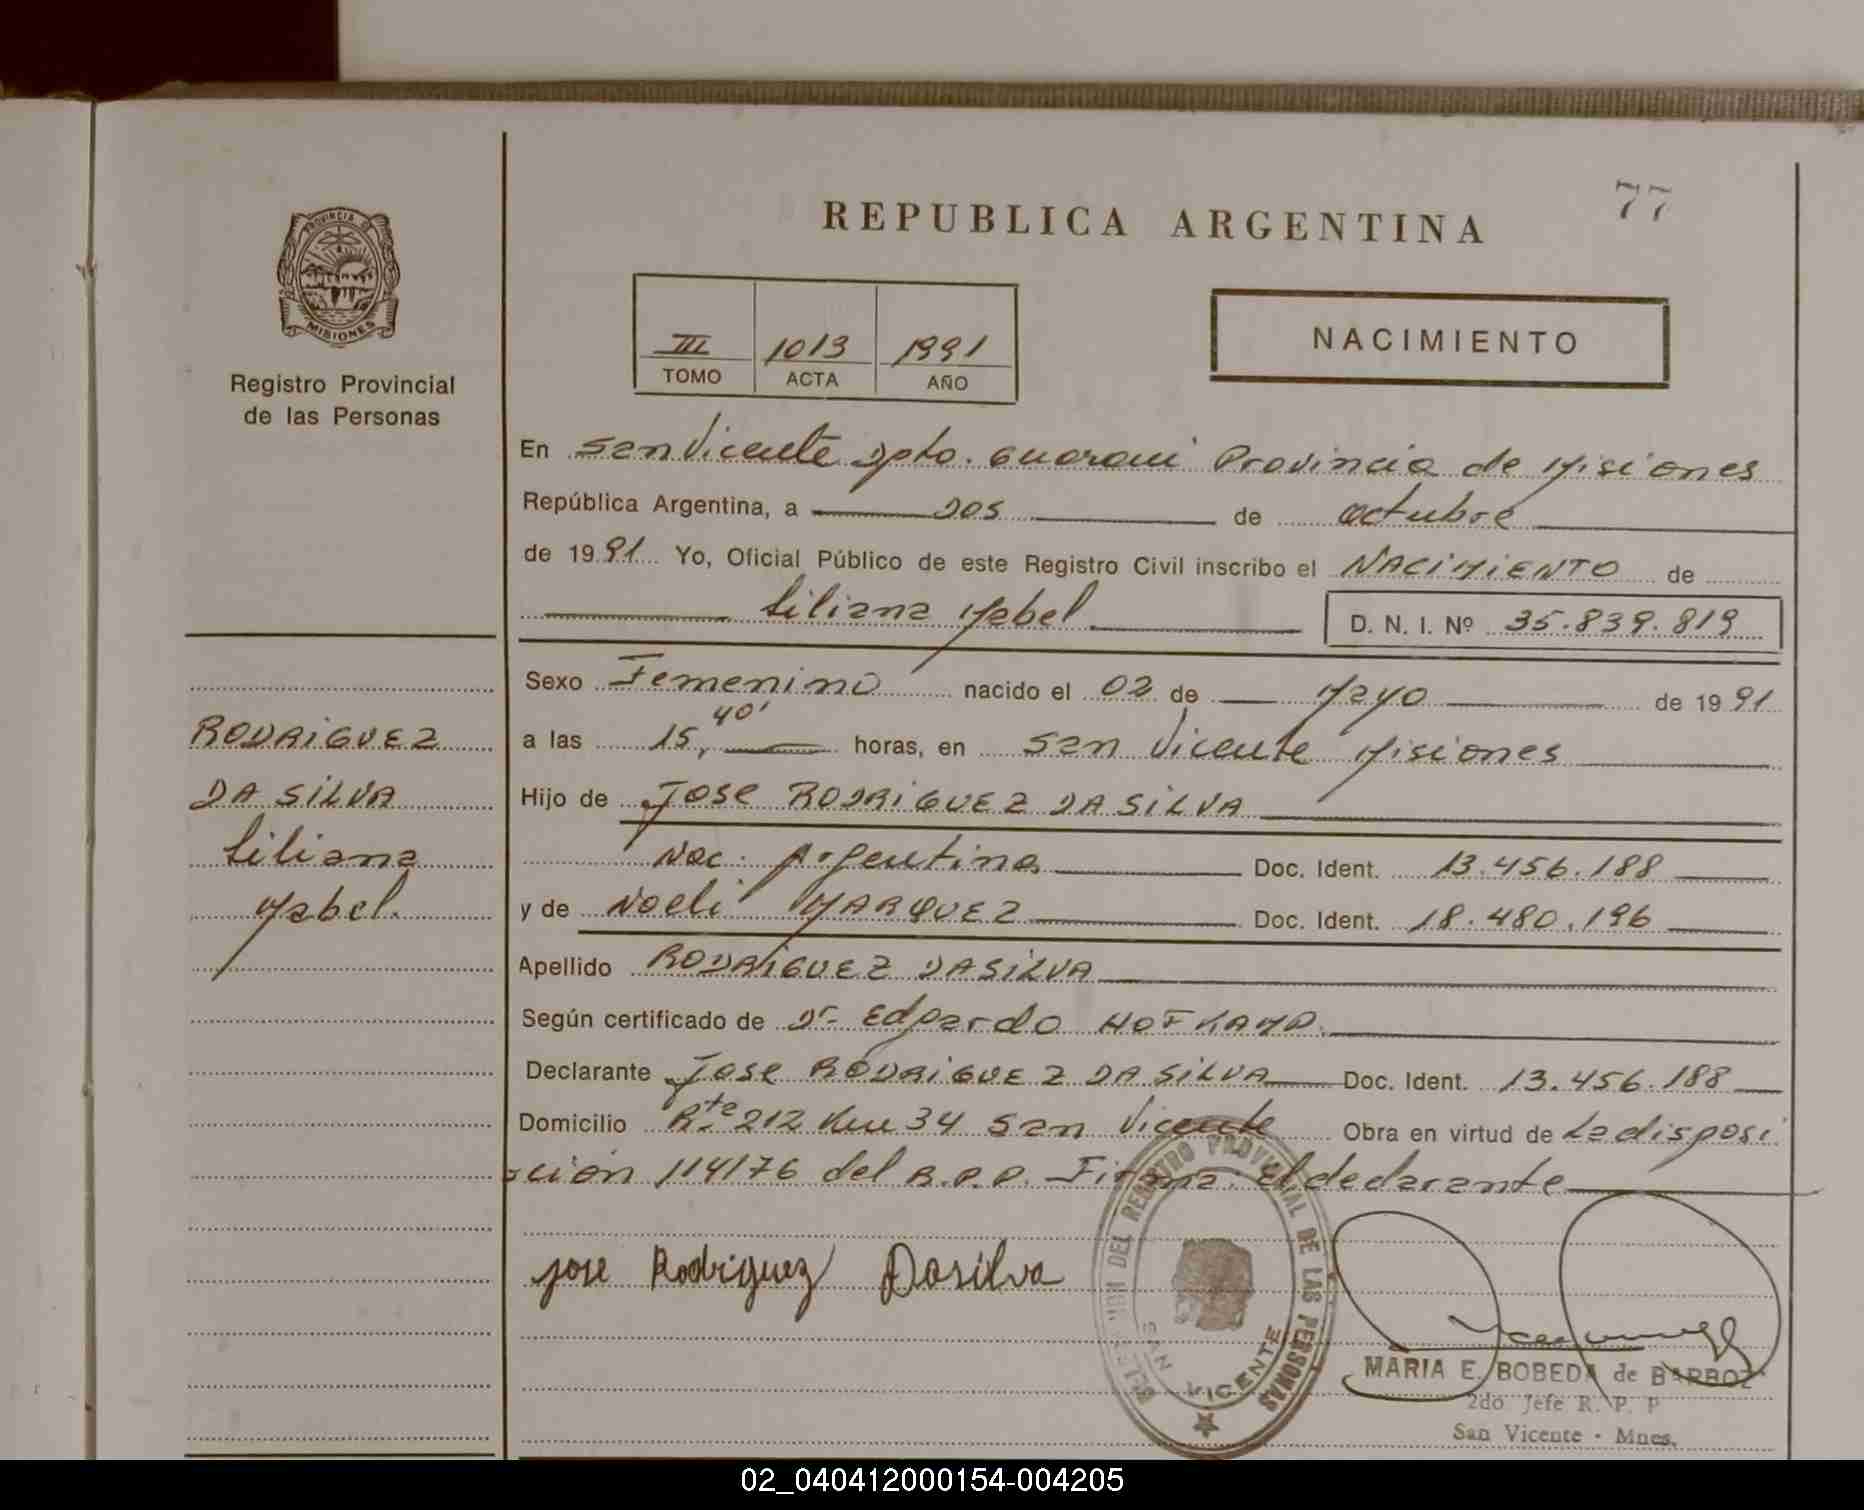 77
REPUBLICA ARGENTINA
PROVINCIA D
MISIONES
Registro Provincial
de las Personas
III 1013 1991
TOMO ACTA AÑO
NACIMIENTO
En San Vicente Dpto. Guarani Provincia de Misiones
República Argentina, a DOS de octubre
de 1991 Yo, Oficial Público de este Registro Civil inscribo el NACIMIENTO de
Liliana Mabel D. N. I. Nº 35.839.819
Sexo Femenino nacido el 02 de Mayo de 1991
a las 15,40' horas, en San Vicente Misiones
Hijo de Jose RODRIGUEZ DA SILVA
Nac. Argentina Doc. Ident. 13.456.188
y de Noeli MARQUEZ Doc. Ident. 18.480.196
Apellido RODRIGUEZ DA SILVA
Según certificado de Dr. Edgardo HOFKAMP.
Declarante Jose RODRIGUEZ DA SILVA Doc. Ident. 13.456.188
Domicilio Rta 212 Km 34 San Vicente Obra en virtud de La disposi
ción 114/76 del R.P.P. Firma: El declarante
RODRIGUEZ
DA SILVA
Liliana
Mabel.
jose Rodriguez Dasilva
DEL REGISTRO PROVINCIAL DE LAS PERSONAS
SAN VICENTE
MARIA E. BOBEDA de BARBOZ
2do Jefe R. P. P
San Vicente - Mnes.
02_040412000154-004205